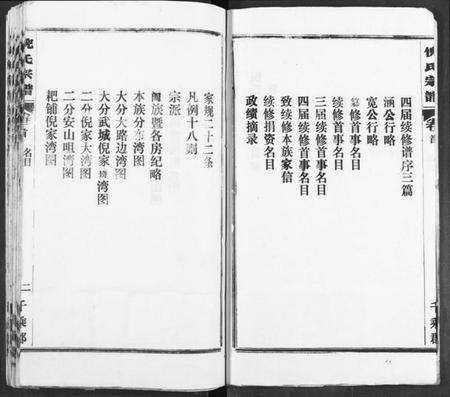 倪氏宗谱 卷首
四届续修谱序三篇
涵公行略
宽公行略
纂修首事名目
续修首事名目
三届续修首事名目
四届续修首事名目
致续修本族家信
续修捐资名目
政绩摘录
千乘郡
倪氏宗谱 卷首 名目
家规二十二条
凡例十八则
宗派
阖族暨各房纪略
本族分布湾图
大分大路边湾图
大分武城倪家湾图
二分倪家大湾图
二分安山咀湾图
耙铺倪家湾图
二 千乘郡